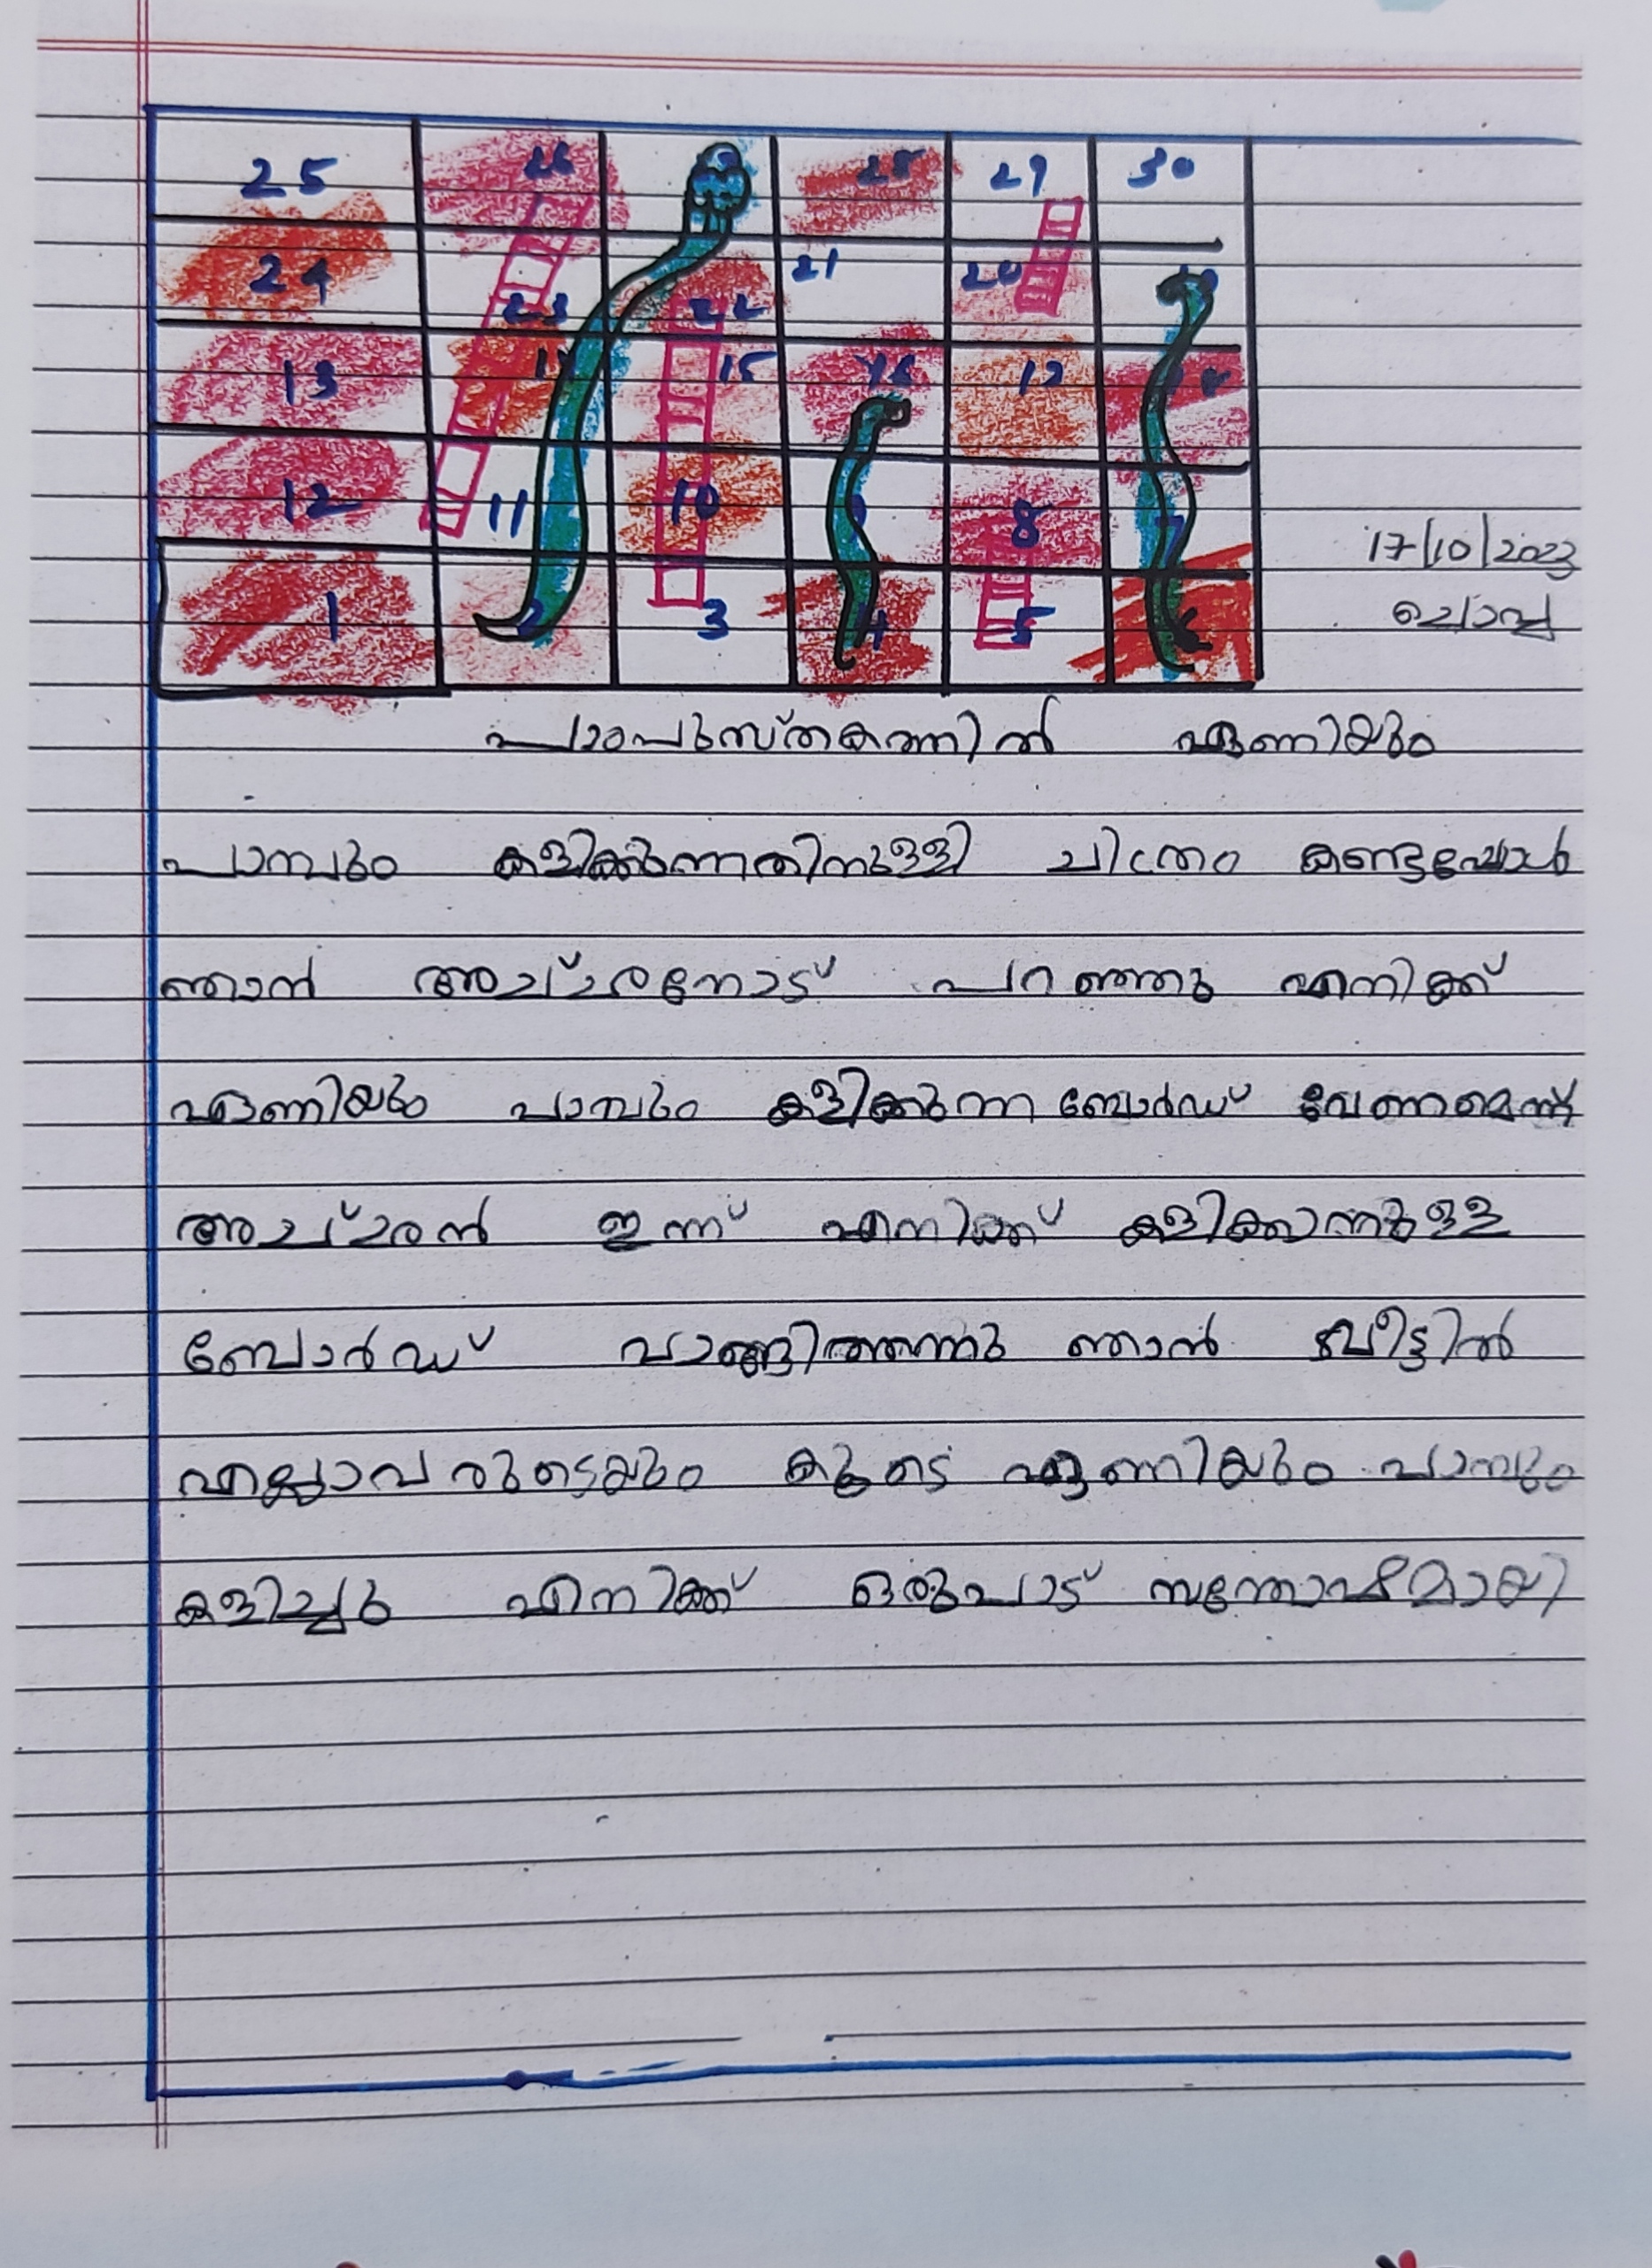 25 26 28 29 30
24 23 22 21 20
13 14 15 16 17
12 11 10 8 7
1 2 3 4 5 6
17/10/2023
ചൊവ്വ
പാഠപുസ്തകത്തിൽ ഏണിയും
പാമ്പും കളിക്കുന്നതിനുള്ളി ചിത്രം കണ്ടപ്പോൾ
ഞാൻ അച്ഛനോട് പറഞ്ഞു എനിക്ക്
ഏണിയും പാമ്പും കളിക്കുന്ന ബോർഡ് വേണമെന്ന്
അച്ഛൻ ഇന്ന് എനിക്ക് കളിക്കാനുള്ള
ബോർഡ് വാങ്ങിത്തന്നു ഞാൻ വീട്ടിൽ
എല്ലാവരുടെയും കൂടെ ഏണിയും പാമ്പും
കളിച്ചു എനിക്ക് ഒരുപാട് സന്തോഷമായി